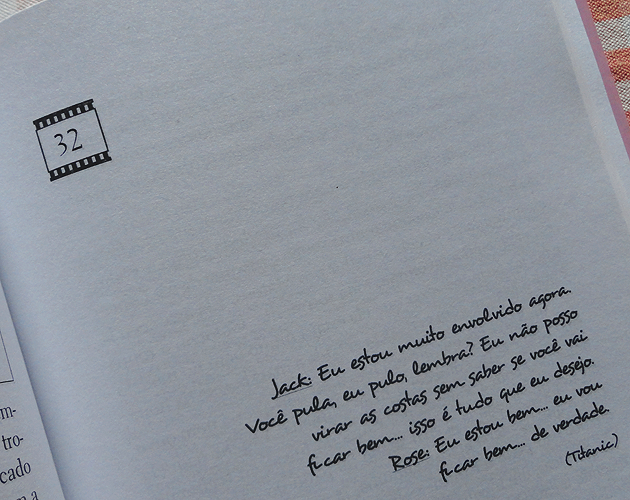 32
Jack: Eu estou muito envolvido agora.
Você pula, eu pulo, lembra? Eu não posso
virar as costas sem saber se você vai
ficar bem... isso é tudo que eu desejo.
Rose: Eu estou bem... eu vou
ficar bem... de verdade.
(Titanic)
m-
tro-
cado
m a